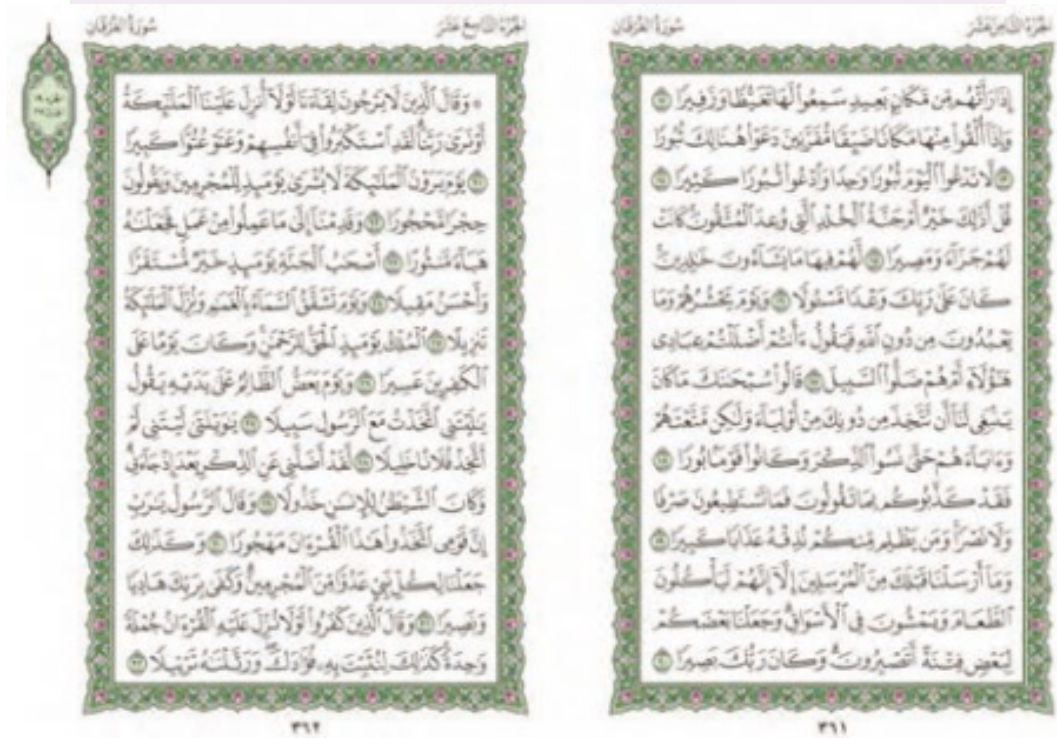 الجزء الثامن عشر
سورة الفرقان
إِذَا رَأَتْهُم مِّن مَّكَانٍ بَعِيدٍ سَمِعُوا۟ لَهَا تَغَيُّظًا وَزَفِيرًا ١٢
وَإِذَآ أُلْقُوا۟ مِنْهَا مَكَانًا ضَيِّقًا مُّقَرَّنِينَ دَعَوْا۟ هُنَالِكَ ثُبُورًا
١٣ لَّا تَدْعُوا۟ ٱلْيَوْمَ ثُبُورًا وَٰحِدًا وَٱدْعُوا۟ ثُبُورًا كَثِيرًا ١٤
قُلْ أَذَٰلِكَ خَيْرٌ أَمْ جَنَّةُ ٱلْخُلْدِ ٱلَّتِى وُعِدَ ٱلْمُتَّقُونَۚ كَانَتْ
لَهُمْ جَزَآءً وَمَصِيرًا ١٥ لَّهُمْ فِيهَا مَا يَشَآءُونَ خَٰلِدِينَۚ
كَانَ عَلَىٰ رَبِّكَ وَعْدًا مَّسْـُٔولًا ١٦ وَيَوْمَ يَحْشُرُهُمْ وَمَا
يَعْبُدُونَ مِن دُونِ ٱللَّهِ فَيَقُولُ ءَأَنتُمْ أَضْلَلْتُمْ عِبَادِى
هَٰٓؤُلَآءِ أَمْ هُمْ ضَلُّوا۟ ٱلسَّبِيلَ ١٧ قَالُوا۟ سُبْحَٰنَكَ مَا كَانَ
يَنۢبَغِى لَنَآ أَن نَّتَّخِذَ مِن دُونِكَ مِنْ أَوْلِيَآءَ وَلَٰكِن مَّتَّعْتَهُمْ
وَءَابَآءَهُمْ حَتَّىٰ نَسُوا۟ ٱلذِّكْرَ وَكَانُوا۟ قَوْمًۢا بُورًا ١٨
فَقَدْ كَذَّبُوكُم بِمَا تَقُولُونَ فَمَا تَسْتَطِيعُونَ صَرْفًا
وَلَا نَصْرًاۚ وَمَن يَظْلِم مِّنكُمْ نُذِقْهُ عَذَابًا كَبِيرًا ١٩
وَمَآ أَرْسَلْنَا قَبْلَكَ مِنَ ٱلْمُرْسَلِينَ إِلَّآ إِنَّهُمْ لَيَأْكُلُونَ
ٱلطَّعَامَ وَيَمْشُونَ فِى ٱلْأَسْوَاقِۗ وَجَعَلْنَا بَعْضَكُمْ
لِبَعْضٍ فِتْنَةً أَتَصْبِرُونَۗ وَكَانَ رَبُّكَ بَصِيرًا ٢٠
٣٦١
الجزء التاسع عشر
سورة الفرقان
۞ وَقَالَ ٱلَّذِينَ لَا يَرْجُونَ لِقَآءَنَا لَوْلَآ أُنزِلَ عَلَيْنَا ٱلْمَلَٰٓئِكَةُ
أَوْ نَرَىٰ رَبَّنَاۗ لَقَدِ ٱسْتَكْبَرُوا۟ فِىٓ أَنفُسِهِمْ وَعَتَوْ عُتُوًّا كَبِيرًا
٢١ يَوْمَ يَرَوْنَ ٱلْمَلَٰٓئِكَةَ لَا بُشْرَىٰ يَوْمَئِذٍ لِّلْمُجْرِمِينَ وَيَقُولُونَ
حِجْرًا مَّحْجُورًا ٢٢ وَقَدِمْنَآ إِلَىٰ مَا عَمِلُوا۟ مِنْ عَمَلٍ فَجَعَلْنَٰهُ
هَبَآءً مَّنثُورًا ٢٣ أَصْحَٰبُ ٱلْجَنَّةِ يَوْمَئِذٍ خَيْرٌ مُّسْتَقَرًّا
وَأَحْسَنُ مَقِيلًا ٢٤ وَيَوْمَ تَشَقَّقُ ٱلسَّمَآءُ بِٱلْغَمَٰمِ وَنُزِّلَ ٱلْمَلَٰٓئِكَةُ
تَنزِيلًا ٢٥ ٱلْمُلْكُ يَوْمَئِذٍ ٱلْحَقُّ لِلرَّحْمَٰنِۚ وَكَانَ يَوْمًا عَلَى
ٱلْكَٰفِرِينَ عَسِيرًا ٢٦ وَيَوْمَ يَعَضُّ ٱلظَّالِمُ عَلَىٰ يَدَيْهِ يَقُولُ
يَٰلَيْتَنِى ٱتَّخَذْتُ مَعَ ٱلرَّسُولِ سَبِيلًا ٢٧ يَٰوَيْلَتَىٰ لَيْتَنِى لَمْ
أَتَّخِذْ فُلَانًا خَلِيلًا ٢٨ لَّقَدْ أَضَلَّنِى عَنِ ٱلذِّكْرِ بَعْدَ إِذْ جَآءَنِىۗ
وَكَانَ ٱلشَّيْطَٰنُ لِلْإِنسَٰنِ خَذُولًا ٢٩ وَقَالَ ٱلرَّسُولُ يَٰرَبِّ
إِنَّ قَوْمِى ٱتَّخَذُوا۟ هَٰذَا ٱلْقُرْءَانَ مَهْجُورًا ٣٠ وَكَذَٰلِكَ
جَعَلْنَا لِكُلِّ نَبِىٍّ عَدُوًّا مِّنَ ٱلْمُجْرِمِينَۗ وَكَفَىٰ بِرَبِّكَ هَادِيًا
وَنَصِيرًا ٣١ وَقَالَ ٱلَّذِينَ كَفَرُوا۟ لَوْلَا نُزِّلَ عَلَيْهِ ٱلْقُرْءَانُ جُمْلَةً
وَٰحِدَةًۚ كَذَٰلِكَ لِنُثَبِّتَ بِهِۦ فُؤَادَكَۖ وَرَتَّلْنَٰهُ تَرْتِيلًا ٣٢
٣٦٢